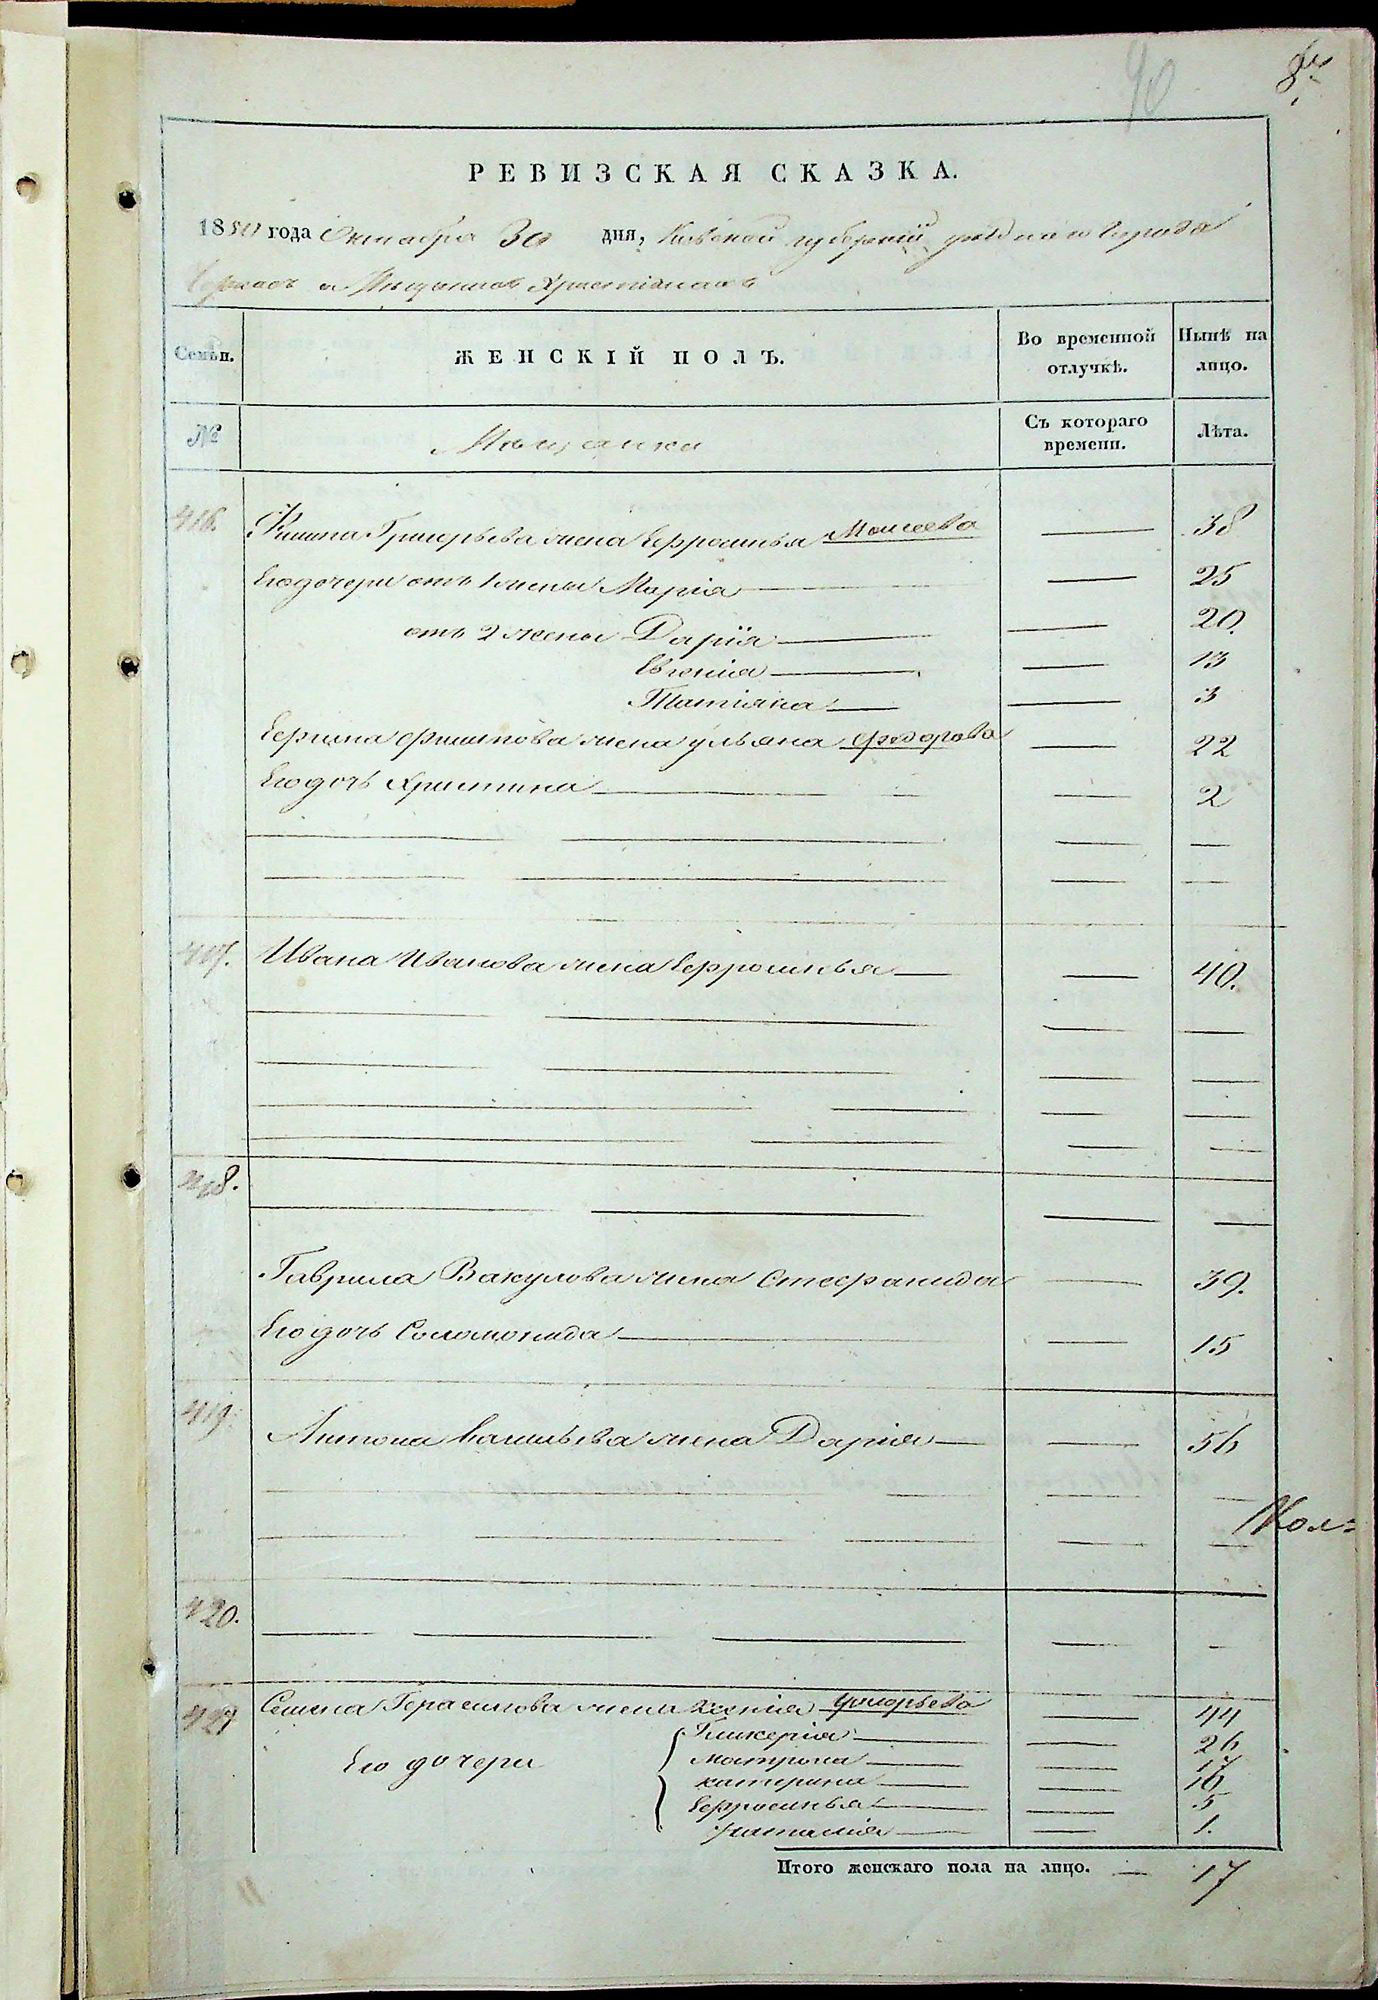 90
РЕВИЗСКАЯ СКАЗКА.
1850 года Октября 30 дня, Кіевской губерніи уѣзднаго города
Черкасъ о Мѣщанахъ Христіанахъ
Семьи. ЖЕНСКІЙ ПОЛЪ. Во временной отлучкѣ. Нынѣ на лицо.
№ Мѣщанки Съ котораго времени. Лѣта.
416. Филипа Григорьева жена Ефросинья Моисеева — 38
Его дочери отъ 1 жены Марія — 25
отъ 2 жены Дарія — 20.
Евгенія — 13
Татіяна — 3
Филипова жена Ульяна Федорова — 22
Его дочь Христина — 2
417. Ивана Иванова жена Ефросинья — 40.
418.
Гаврила Вакулова жена Стефанида — 39.
Его дочь Соломонида — 15
419. Антона Васильева жена Дарія — 56
Кол=
420.
421 Семена Герасимова жена Ксенія Григорьева — 44
Гликерія — 26
Его дочери Матрона — 17
Катерина — 16
Ефросинья — 5
Наталія — 1.
Итого женскаго пола на лицо. — 17